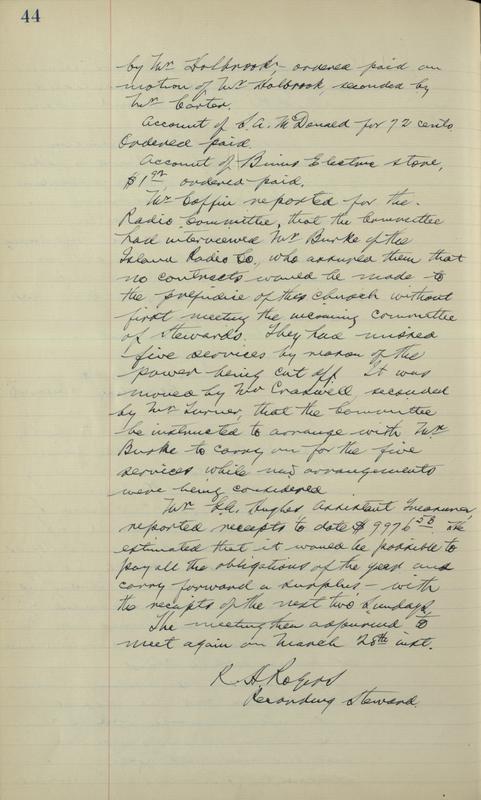 44
by Mr Holbrook, ordered paid on
motion of Mr Holbrook seconded by
Mr Carter.
Account of S. A. McDonald for 72 cents
Ordered paid.
Account of Binns Electric store,
$1 ordered paid.
Mr Coffin reported for the
Radio Committee, that the Committee
had interviewed Mr Burke of the
Island Radio Co, who assured them that
no contracts would be made to
the prejudice of the church without
first meeting the incoming committee
of stewards. They had missed
five services by reason of the
power being cut off. It was
moved by Mr Craswell, seconded
by Mr Turner, that the Committee
be instructed to arrange with Mr
Burke to carry on for the five
services while new arrangements
were being considered
Mr Hughes Assistant Treasurer
reported receipts to date $9976 58 He
estimated that it would be possible to
pay all the obligations of the year and
carry forward a surplus - with
the receipts of the next two Sundays.
The meeting then adjourned to
meet again on March 28th inst.
R. H. Rogers
Recording Steward.